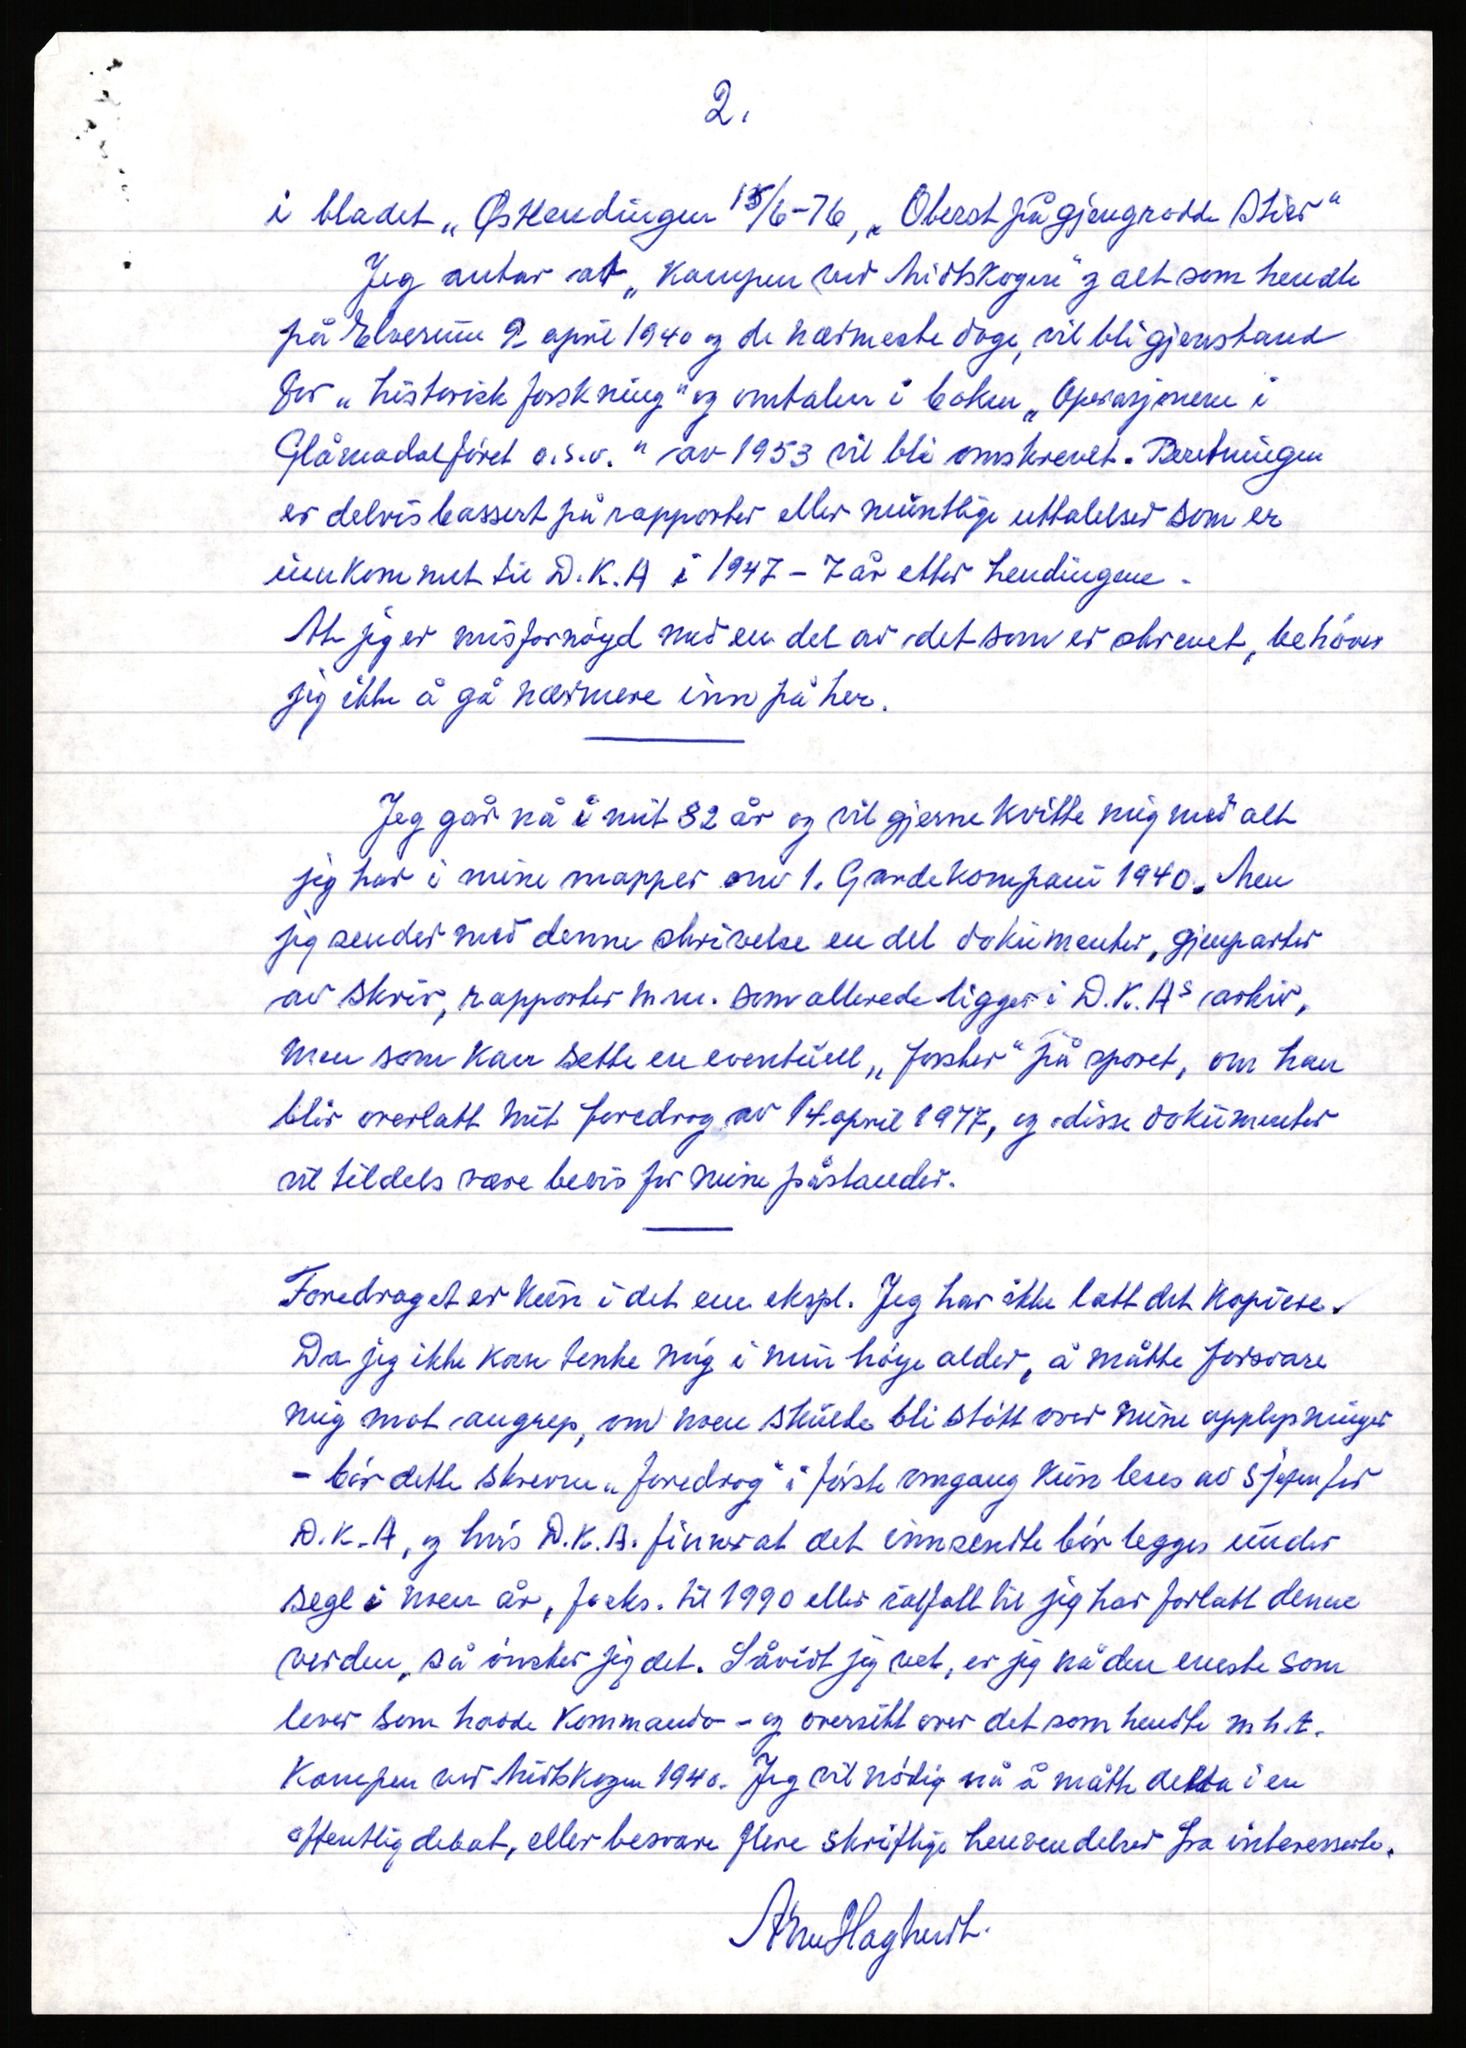 2.
i bladet „Østlendingen 15/6-76, „Oberst på gjengrodde stier“
Jeg antar at „Kampen ved Midtskogen“ og alt som hendte
på Elverum 9. april 1940 og de nærmeste dage, vil bli gjenstand
for „historisk forskning“ og omtalen i boken „Operasjonene i
Glåmadalføret o.s.v.“ av 1953 vil bli omskrevet. Beretningen
er delvis bassert på rapporter eller muntlige uttalelser som er
innkommet til D.K.A i 1947 - 7 år etter hendingene.
At jeg er misfornøyd med en del av det som er skrevet, behøver
jeg ikke å gå nærmere inn på her.
Jeg går nå i mit 82 år og vil gjerne kvitte mig med alt
jeg har i mine mapper om 1. Gardekompani 1940. Men
jeg sender med denne skrivelse en del dokumenter, gjenparter
av skriv, rapporter m.m. som allerede ligger i D.K.As arkiv,
men som kan sette en eventuell „forsker“ på sporet, om han
blir overlatt mit foredrag av 14. april 1977, og disse dokumenter
vil tildels være bevis for mine påstander.
Foredraget er kun i det ene ekspl. Jeg har ikke latt det kopiere.
Da jeg ikke kan tenke mig i min høye alder, å måtte forsvare
mig mot angrep, om noen skulde bli støtt over mine opplysninger
- bør dette skrevne „foredrag“ i første omgang kun leses av sjefen for
D.K.A, og hvis D.K.A. finner at det innsendte bør legges under
segl i noen år, f.eks. til 1990 eller iallfall til jeg har forlatt denne
verden, så ønsker jeg det. Såvidt jeg vet, er jeg nå den eneste som
lever som hadde kommando - og oversikt over det som hendte m.h.t.
Kampen ved Midtskogen 1940. Jeg vil nødig nå å måtte delta i en
offentlig debat, eller besvare flere skriftlige henvendelser fra interesserte.
Arne Hagtvedt.